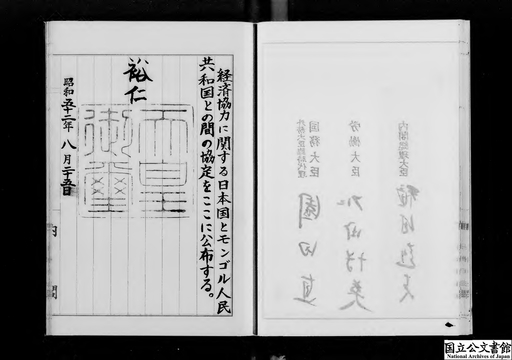 経済協力に関する日本国とモンゴル人民
共和国との間の協定をここに公布する。
裕仁
天皇
御璽
昭和五十二年八月二十五日
内閣
内閣総理大臣
福田赳夫
労働大臣
石田博英
国務大臣
外務大臣臨時代理
園田直
国立公文書館
National Archives of Japan